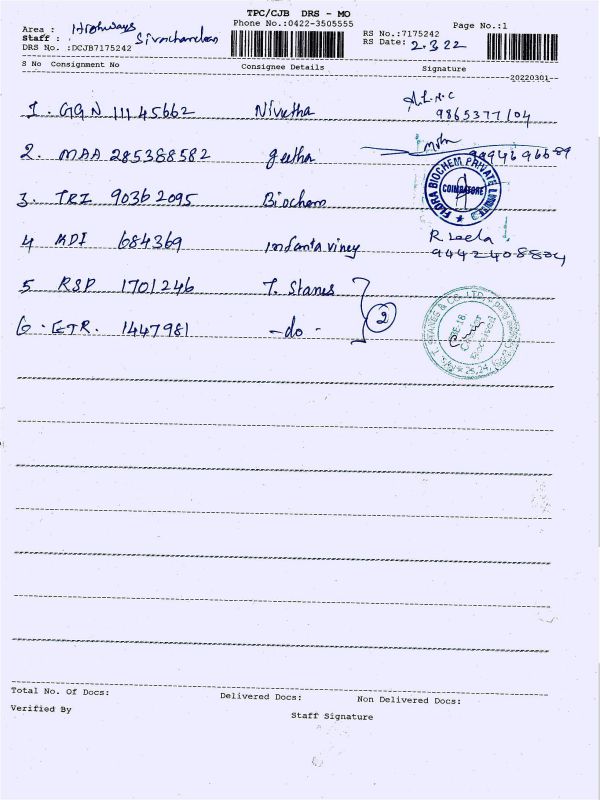 TPC/CJB DRS - MO
Area : Highways Phone No.:0422-3505555 RS No.:7175242 Page No.:1
Staff : Sivachandran RS Date: 2.3.22
DRS No. :DCJB7175242
S No Consignment No Consignee Details Signature
20220301
1. GGN 111145662 Nivetha 9865377104
2. MAA 285388582 geetha 9994696689
FLORA BIOCHEM PRIVATE LIMITED
COIMBATORE
3. TRZ 90362095 Biochem
4 KDI 684369 infanta viney R Leela
9442408804
5 RSP 1701246 T. Stanes
T. STANES & CO. LTD.
6. ETR. 1447981 -do- 2
Total No. Of Docs: Delivered Docs: Non Delivered Docs:
Verified By Staff Signature